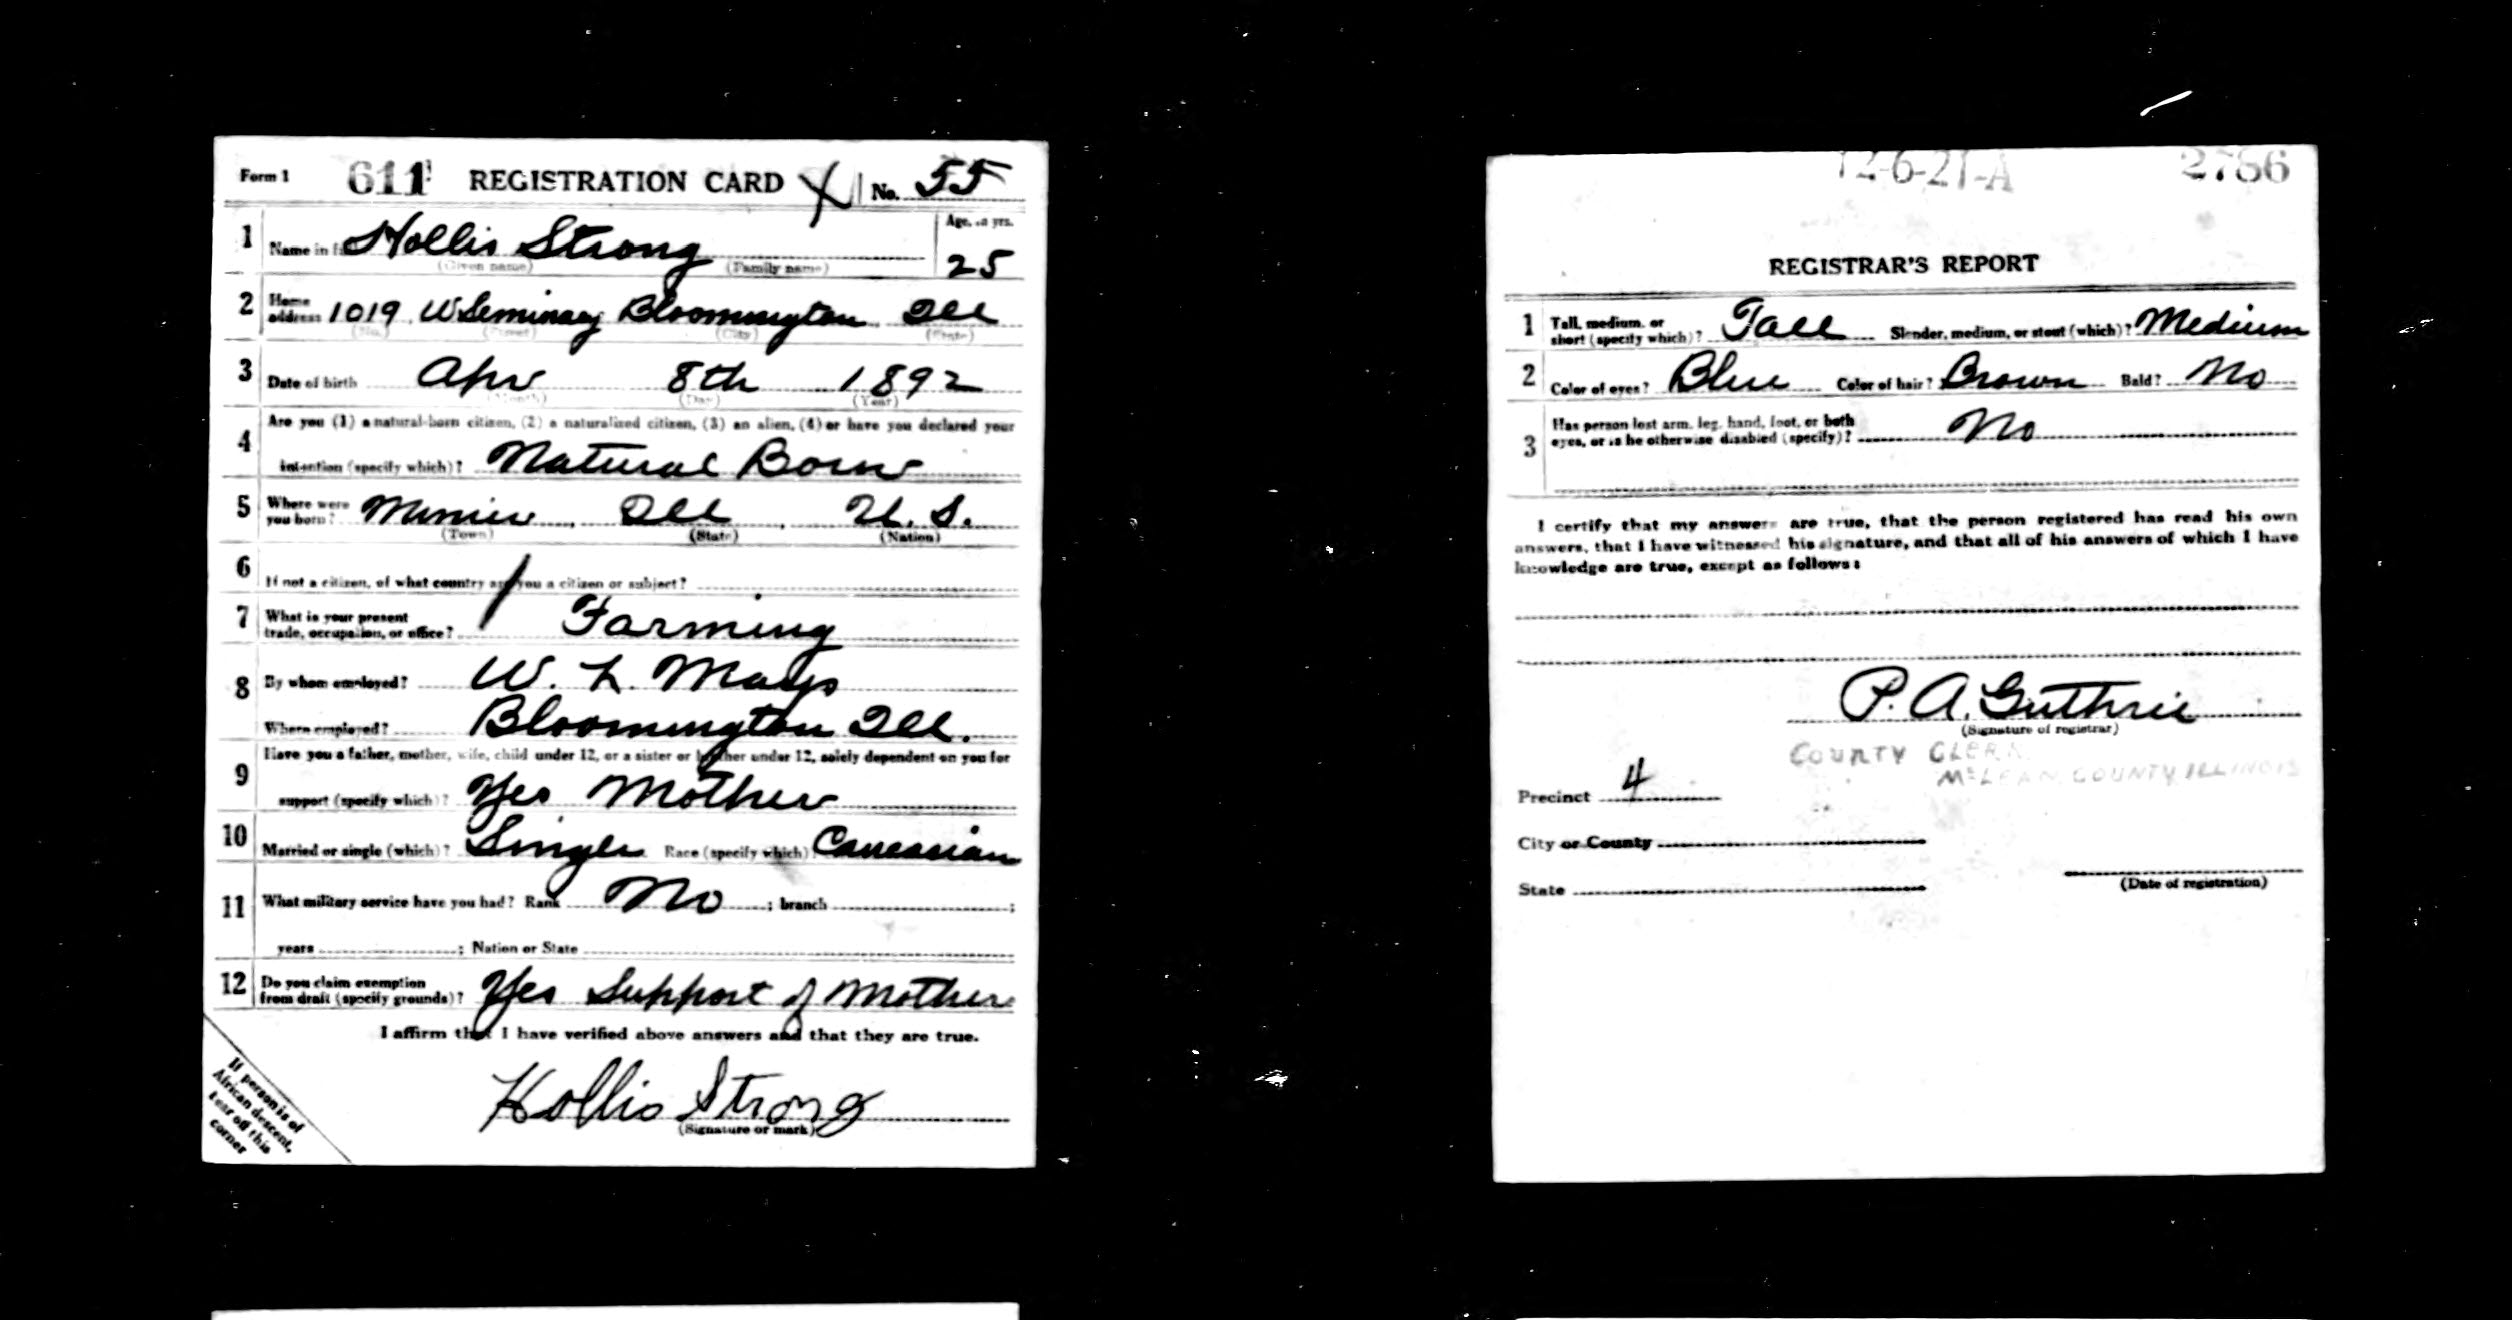 Form 1 611 REGISTRATION CARD X No. 55
1 Name in full Hollis Strong Age, in yrs.
(Given name) (Family name) 25
2 Home address 1019 W Seminary Bloomington Ill
(No.) (Street) (City) (State)
3 Date of birth Apr 8th 1892
(Month) (Day) (Year)
4 Are you (1) a natural-born citizen, (2) a naturalized citizen, (3) an alien, (4) or have you declared your
intention (specify which)? Natural Born
5 Where were you born? Minier, Ill, U. S.
(Town) (State) (Nation)
6 If not a citizen, of what country are you a citizen or subject?
7 What is your present
trade, occupation, or office? Farming
8 By whom employed? W. L. Mays
Where employed? Bloomington Ill.
9 Have you a father, mother, wife, child under 12, or a sister or brother under 12, solely dependent on you for
support (specify which)? Yes Mother
10 Married or single (which)? Single Race (specify which)? Caucasian
11 What military service have you had? Rank No ; branch ;
years ; Nation or State
12 Do you claim exemption
from draft (specify grounds)? Yes Support of Mother
I affirm that I have verified above answers and that they are true.
Hollis Strong
(Signature or mark)
If person is of
African descent,
tear off this
corner
12-6-21-A 2786
REGISTRAR'S REPORT
1 Tall, medium, or
short (specify which)? Tall Slender, medium, or stout (which)? Medium
2 Color of eyes? Blue Color of hair? Brown Bald? No
3 Has person lost arm, leg, hand, foot, or both
eyes, or is he otherwise disabled (specify)? No
I certify that my answers are true, that the person registered has read his own
answers, that I have witnessed his signature, and that all of his answers of which I have
knowledge are true, except as follows:
P. A. Guthrie
(Signature of registrar)
COUNTY CLERK
McLEAN COUNTY ILLINOIS
Precinct 4
City or County
State
(Date of registration)